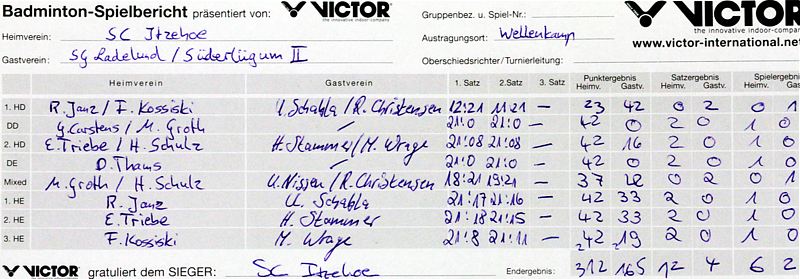 Badminton-Spielbericht präsentiert von: VICTOR the innovative indoor-company Gruppenbez. u. Spiel-Nr.: VICTOR the innovative indoor-compan
Heimverein: SC Itzehoe Austragungsort: Wellenkamp www.victor-international.ne
Gastverein: SG Ladelund / Süderlügum II Oberschiedsrichter/Turnierleitung:
Heimverein Gastverein 1. Satz 2. Satz 3. Satz Punktergebnis Heimv. Gastv. Satzergebnis Heimv. Gastv. Spielergebn Heimv. Gast
1. HD R. Janz / F. Kossiski U. Schabla / R. Christensen 12:21 11:21 — 23 42 0 2 0 1
DD G. Carstens / M. Groth — 21:0 21:0 — 42 0 2 0 1 0
2. HD E. Triebe / H. Schulz H. Stammer / M. Wrage 21:08 21:08 — 42 16 2 0 1 0
DE D. Thams — 21:0 21:0 — 42 0 2 0 1 0
Mixed M. Groth / H. Schulz U. Nissen / R. Christensen 18:21 19:21 — 37 42 0 2 0 1
1. HE R. Janz U. Schabla 21:17 21:16 — 42 33 2 0 1 0
2. HE E. Triebe H. Stammer 21:18 21:15 — 42 33 2 0 1 0
3. HE F. Kossiski M. Wrage 21:8 21:11 — 42 19 2 0 1 0
VICTOR gratuliert dem SIEGER: SC Itzehoe Endergebnis: 312 165 12 4 6 2